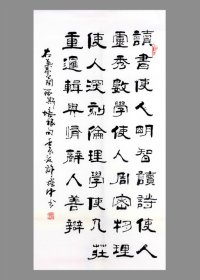 讀書使人明智讀詩使人
靈秀數學使人周密物理
使人深刻倫理學使人莊
重邏輯與脩辭人善辯